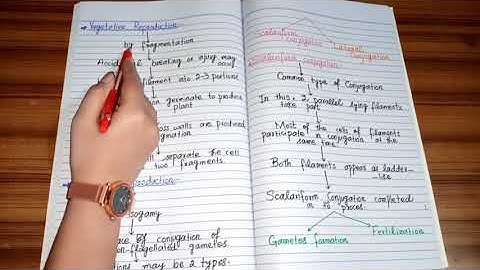 Vegetative Reproduction
by fragmentation
Accidental breaking or injury may
occur
filament into 2-3 portions
germinate to produce
plant
cross walls are produced
separate the cell
two fragments.
isogamy
by conjugation of
flagellated gametes.
may be 2 types.
Scalariform
conjugation
Lateral
Conjugation
Scalariform conjugation
Common type of Conjugation
In this, 2 parallel lying filaments
take part
Most of the cells of filaments
participate in conjugation at the
same time
Both filaments appear as ladder-
like
Scalariform Conjugation completed
in
Gametes formation
Fertilization